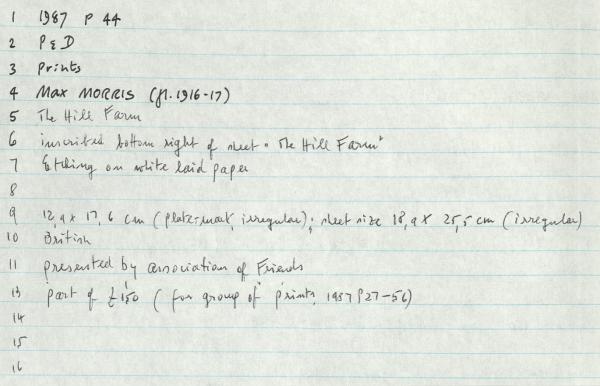 1 1987 P 44
2 P & D
3 Prints
4 Max MORRIS (fl. 1916-17)
5 The Hill Farm
6 inscribed bottom right of sheet "The Hill Farm"
7 Etching on white laid paper
8
9 12,9 x 17,6 cm (plate-mark, irregular); sheet size 18,9 x 25,5 cm (irregular)
10 British
11 presented by association of Friends
13 part of £150 (for group of prints, 1987 P27-56)
14
15
16